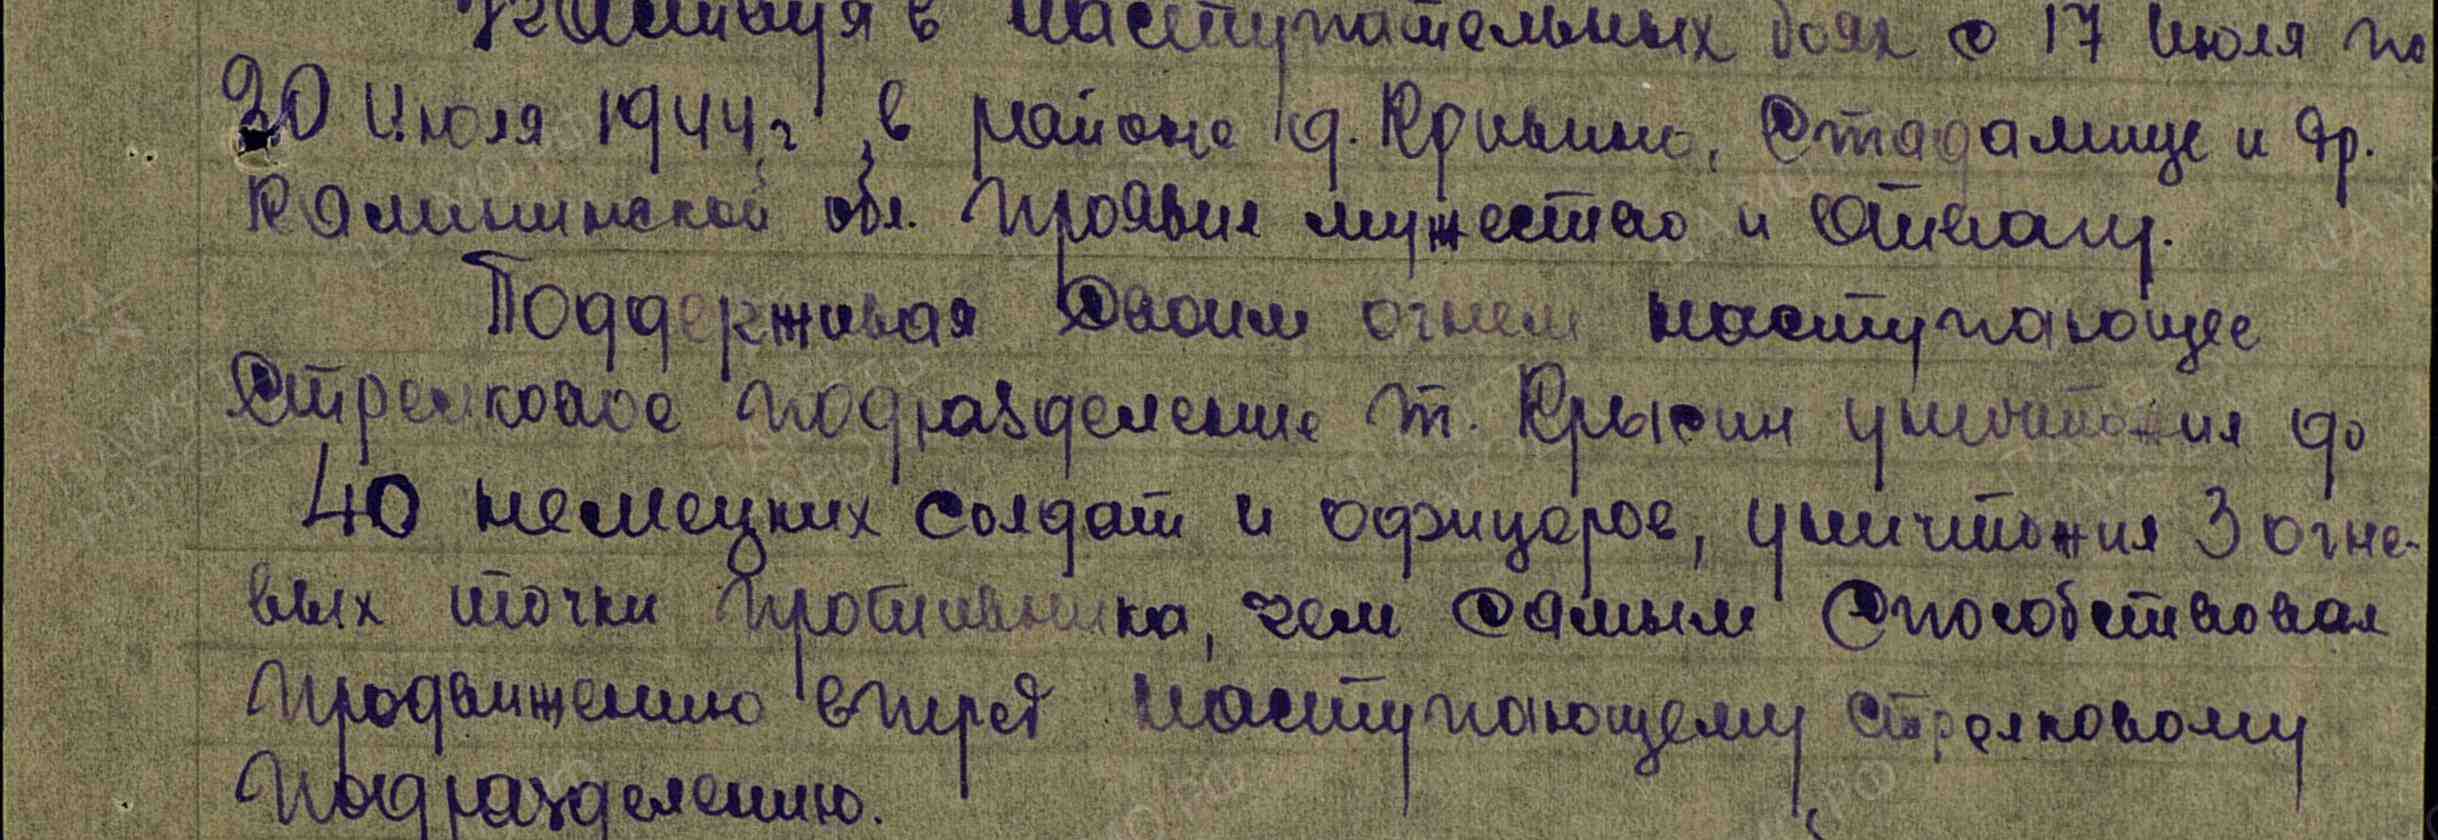 Участвуя в наступательных боях с 17 июля по
20 июля 1944 г в районе д. Стадамище и др.
Калининской обл. проявил мужество и отвагу.
Поддерживая своим огнем наступающее
стрелковое подразделение т. Крысин уничтожил до
40 немецких солдат и офицеров, уничтожил 3 огне-
вых точки противника, чем самым способствовал
продвижению вперед наступающему стрелковому
подразделению.